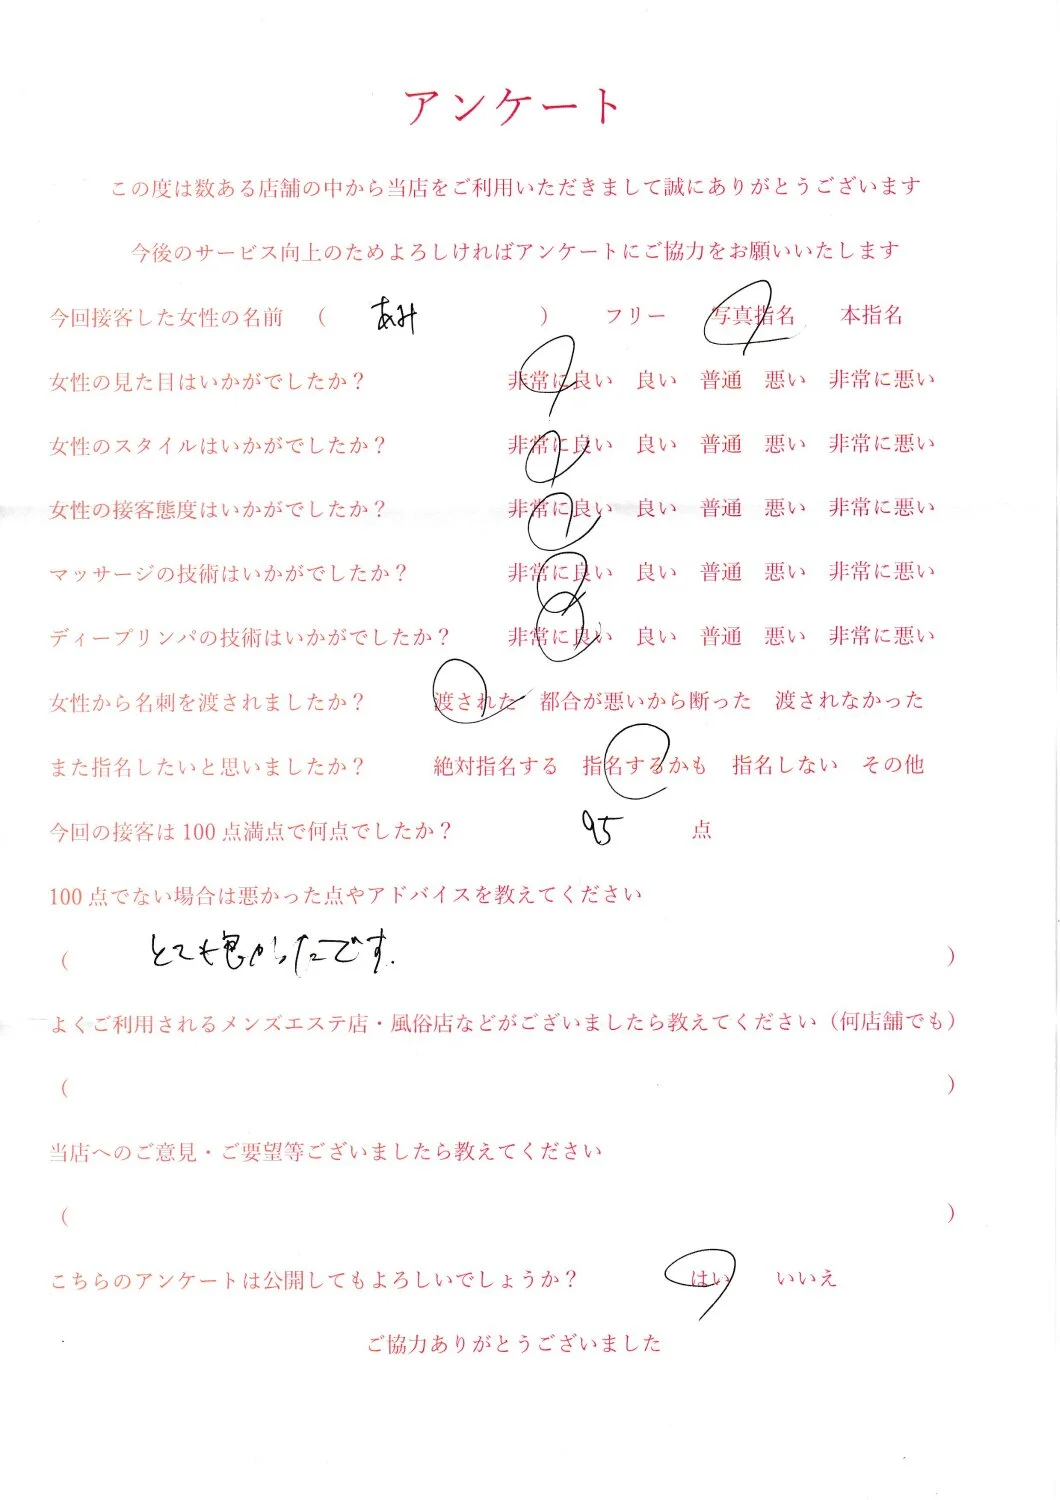 アンケート
この度は数ある店舗の中から当店をご利用いただきまして誠にありがとうございます
今後のサービス向上のためよろしければアンケートにご協力をお願いいたします
今回接客した女性の名前 ( あみ ) フリー 写真指名 本指名
女性の見た目はいかがでしたか？ 非常に良い 良い 普通 悪い 非常に悪い
女性のスタイルはいかがでしたか？ 非常に良い 良い 普通 悪い 非常に悪い
女性の接客態度はいかがでしたか？ 非常に良い 良い 普通 悪い 非常に悪い
マッサージの技術はいかがでしたか？ 非常に良い 良い 普通 悪い 非常に悪い
ディープリンパの技術はいかがでしたか？ 非常に良い 良い 普通 悪い 非常に悪い
女性から名刺を渡されましたか？ 渡された 都合が悪いから断った 渡されなかった
また指名したいと思いましたか？ 絶対指名する 指名するかも 指名しない その他
今回の接客は100点満点で何点でしたか？ 95 点
100点でない場合は悪かった点やアドバイスを教えてください
( とても良かったです. )
よくご利用されるメンズエステ店・風俗店などがございましたら教えてください（何店舗でも）
( )
当店へのご意見・ご要望等ございましたら教えてください
( )
こちらのアンケートは公開してもよろしいでしょうか？ はい いいえ
ご協力ありがとうございました